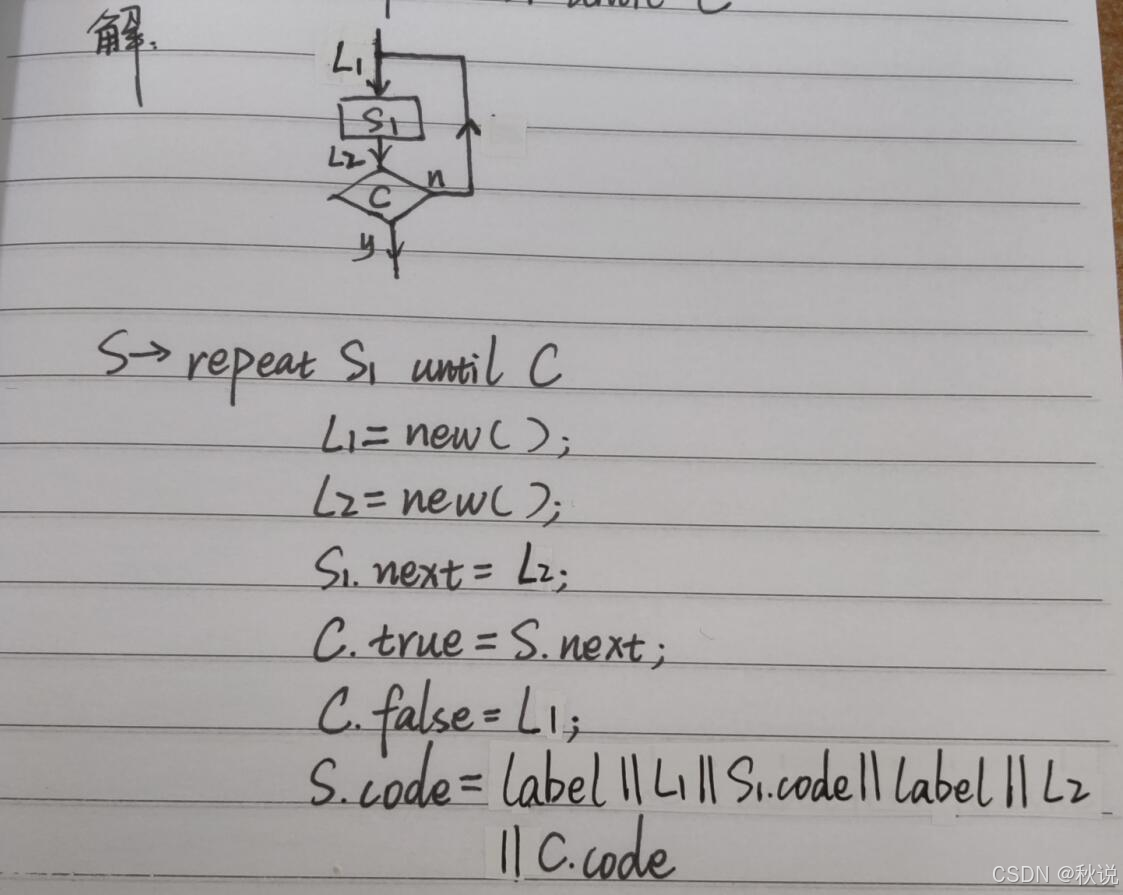 until C
解:
L1
S1
L2
n
C
y
S→ repeat S1 until C
L1= new( );
L2= new( );
S1. next= L2;
C. true = S. next;
C. false= L1;
S.code= label || L1 || S1.code || label || L2
|| C.code
CSDN @秋说